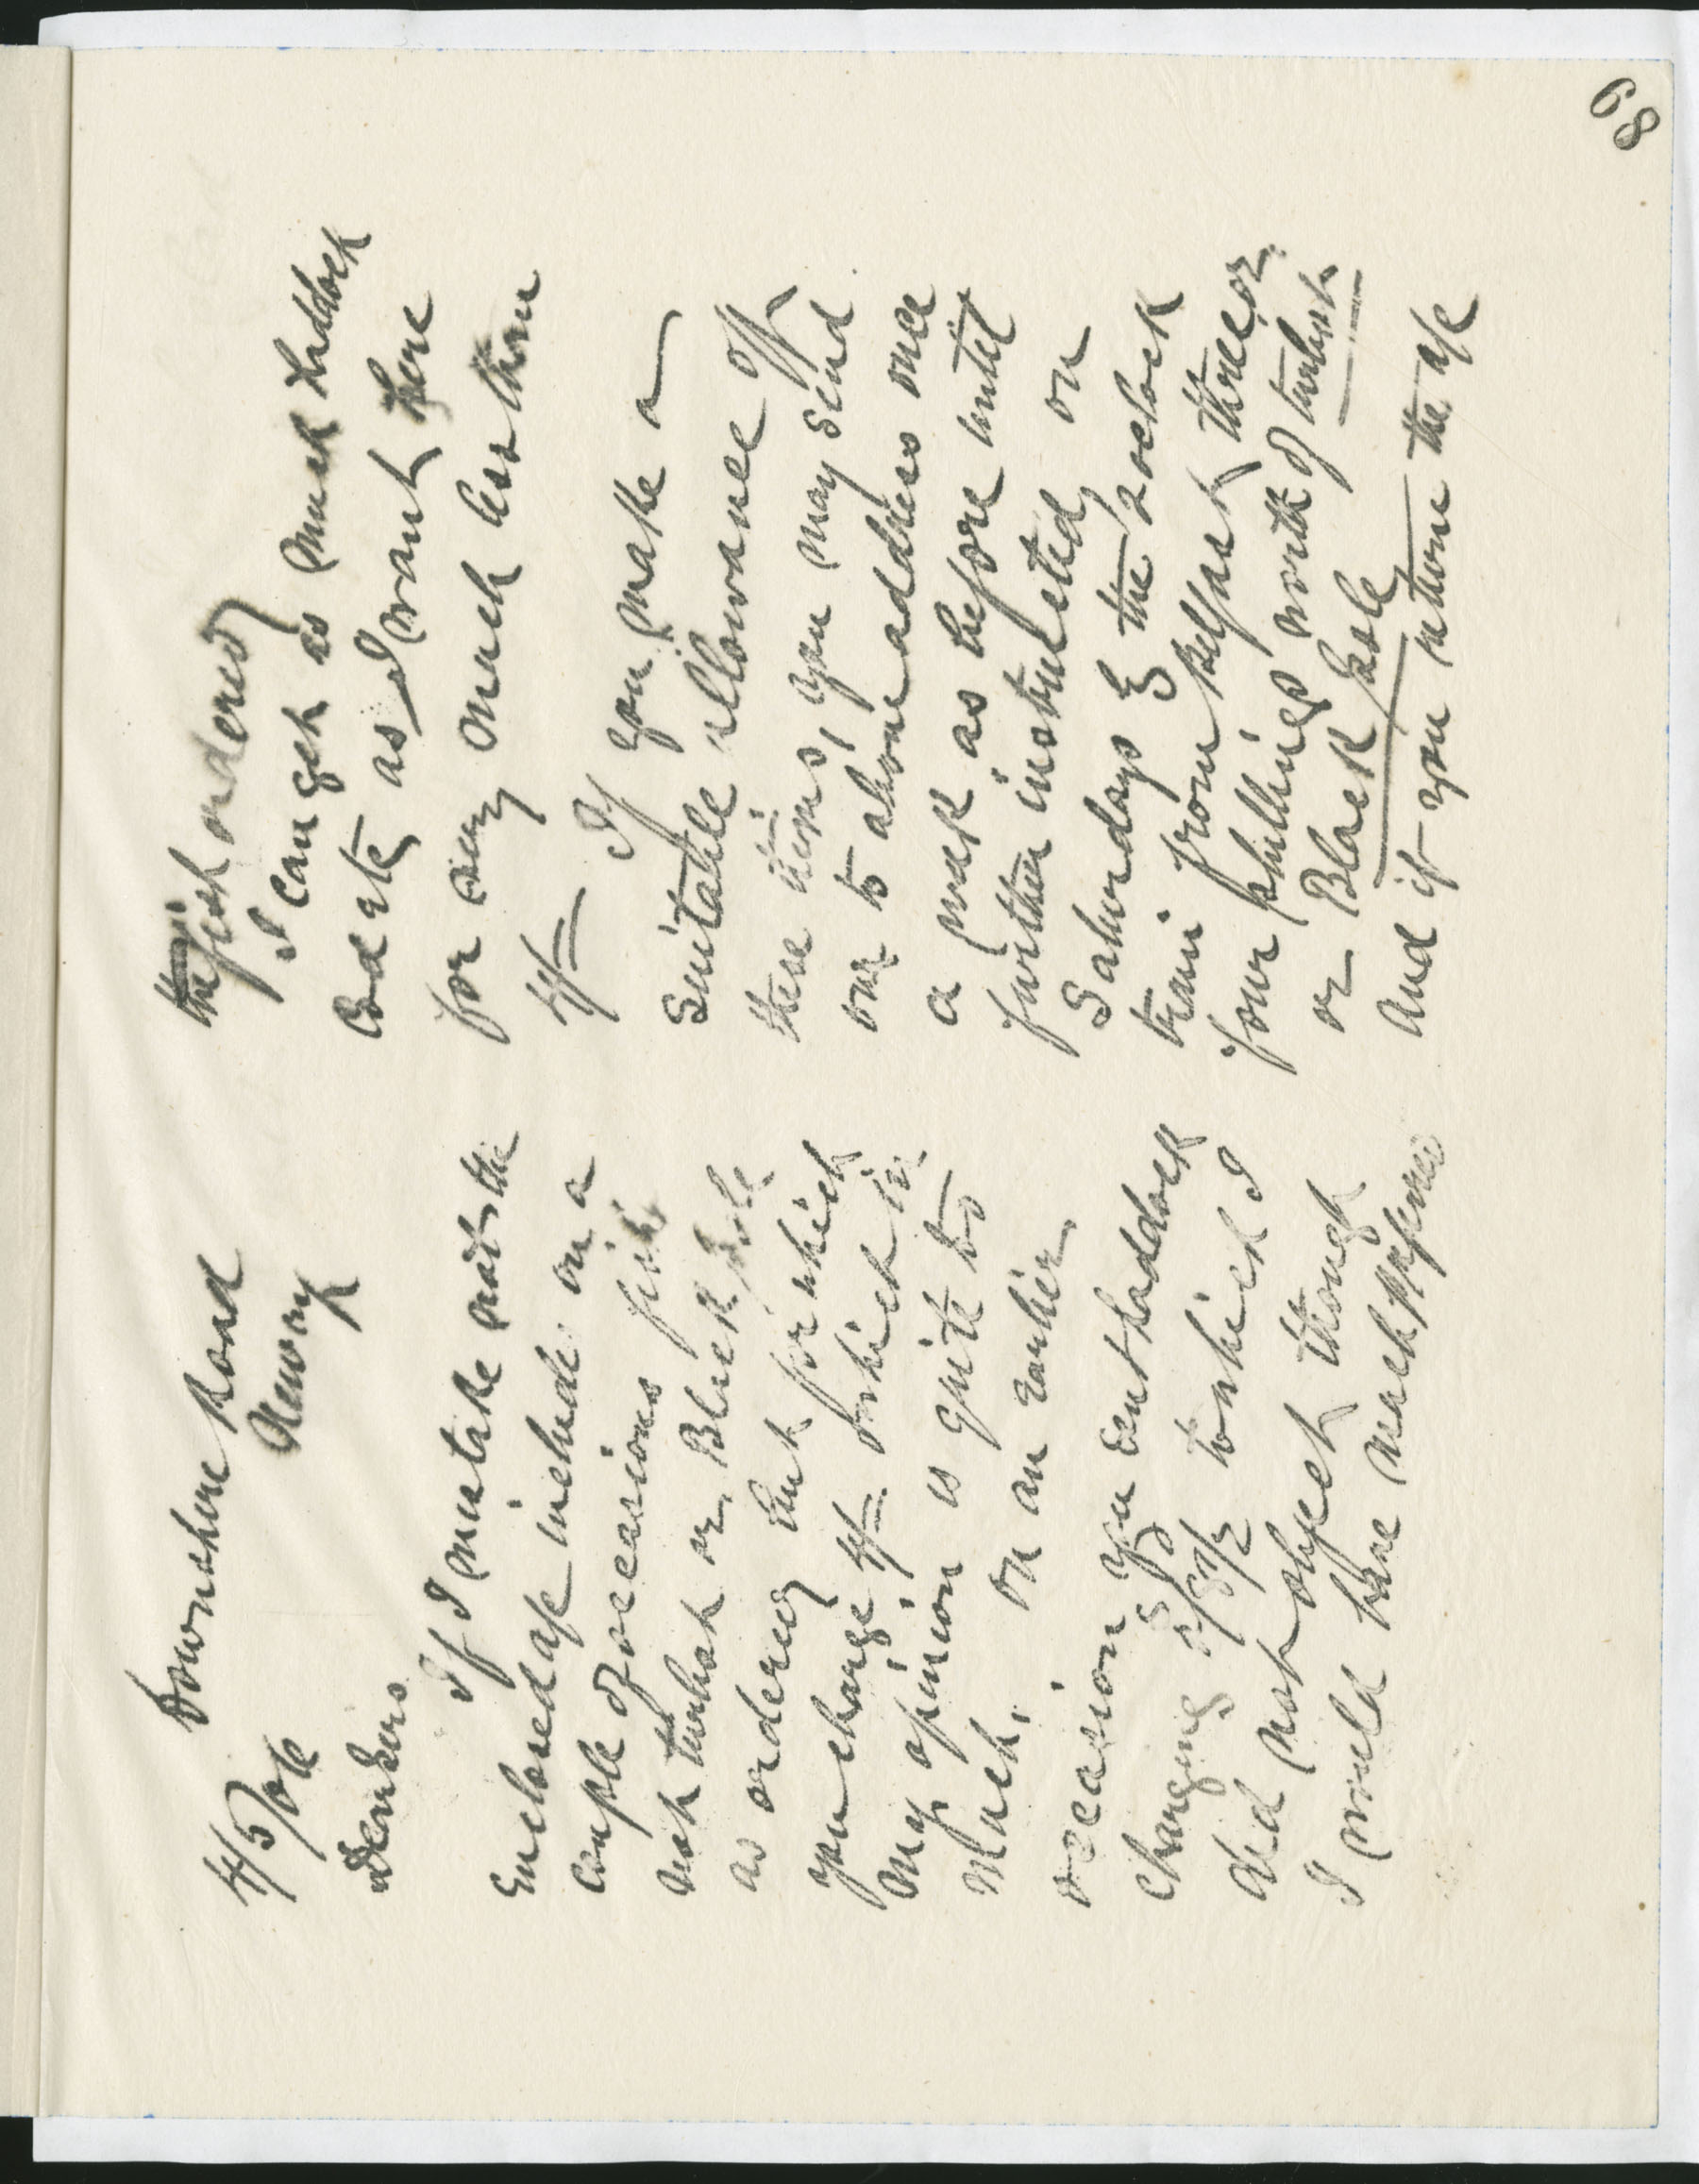 Downshire Road
Newry
4/5/06
Dear Sirs
If I mistake not the
Enclosed a/c include on a
couple of occasions fish
not turbot or Black Sole
as ordered but for which
you charge 4/= which in
my opinion is quite too
much, on an earlier
occasion you sent haddock
charging 2/8½ to which I
did not object though
I would have much preferred
the fish ordered
I can get as much haddock
Cod etc as I want here
for very much less than
4/= If you make a
suitable allowance off
these items, you may send
me to above address once
a week as before until
further instructed, on
Saturdays by the 2 oclock
train from Belfast three or
four shillings worth of turbot
or Black Sole
and if you return the a/c
89